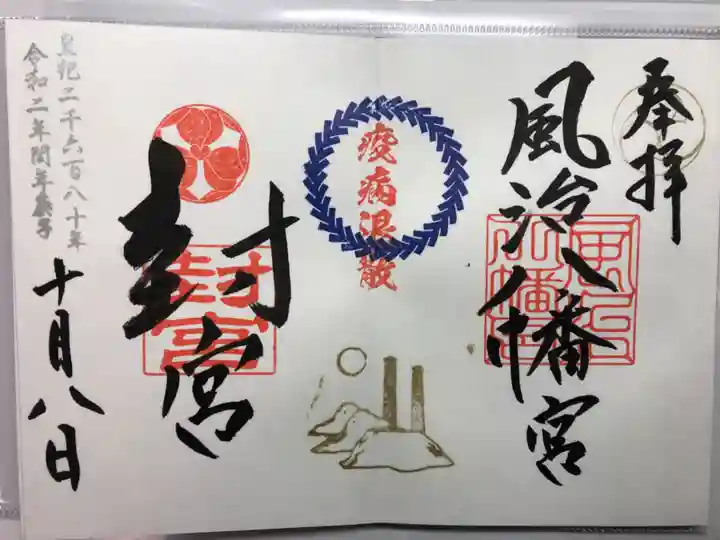 奉拝
風治八幡宮
風治
八幡宮
疫病退散
封宮
封宮
皇紀二千六百八十年
令和二年閏年庚子
十月八日